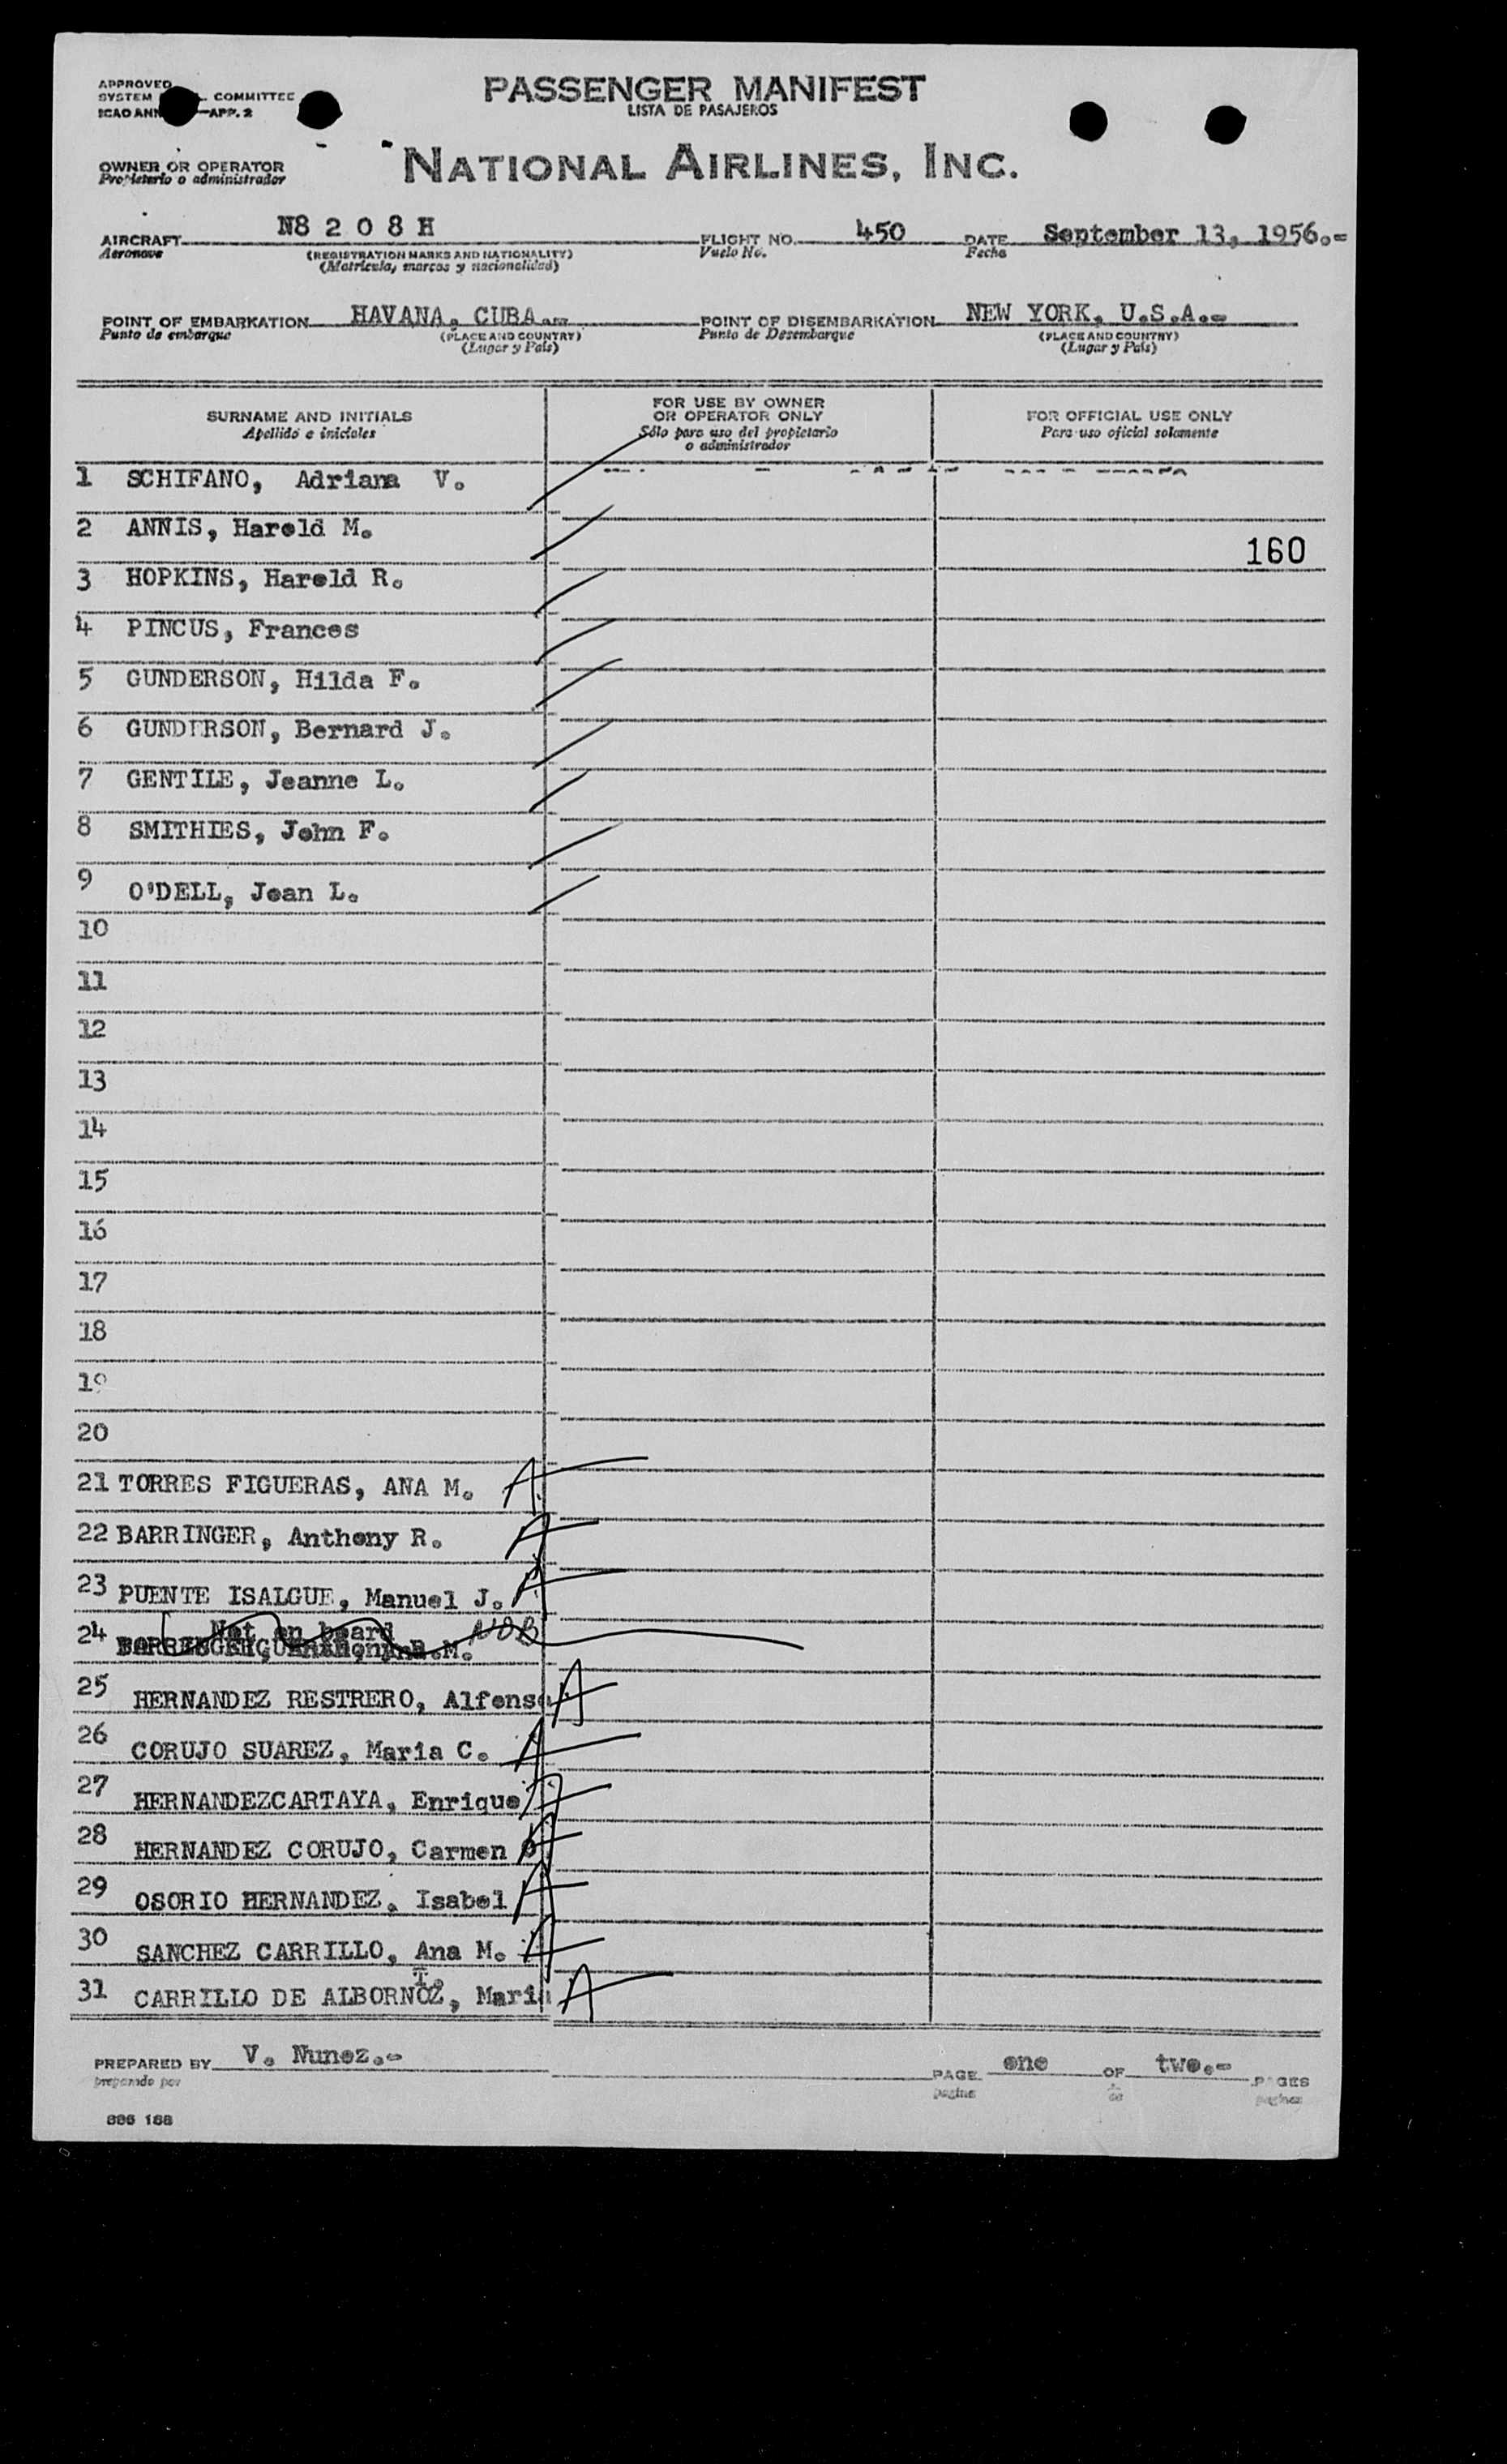 APPROVED
SYSTEM COMMITTEE
ICAO ANN —APP. 2
PASSENGER MANIFEST
LISTA DE PASAJEROS
OWNER OR OPERATOR
Propietario o administrador
NATIONAL AIRLINES, INC.
AIRCRAFT N8 2 0 8 H FLIGHT NO. 450 DATE September 13, 1956.=
Aeronave (REGISTRATION MARKS AND NATIONALITY) Vuelo No. Fecha
(Matricula, marcas y nacionalidad)
POINT OF EMBARKATION HAVANA, CUBA.= POINT OF DISEMBARKATION NEW YORK, U.S.A.=
Punto de embarque (PLACE AND COUNTRY) Punto de Desembarque (PLACE AND COUNTRY)
(Lugar y País) (Lugar y País)
SURNAME AND INITIALS
Apellido e iniciales
FOR USE BY OWNER
OR OPERATOR ONLY
Sólo para uso del propietario
o administrador
FOR OFFICIAL USE ONLY
Para uso oficial solamente
1 SCHIFANO, Adriana V.
2 ANNIS, Harold M.
160
3 HOPKINS, Harold R.
4 PINCUS, Frances
5 GUNDERSON, Hilda F.
6 GUNDERSON, Bernard J.
7 GENTILE, Jeanne L.
8 SMITHIES, John F.
9 O'DELL, Jean L.
10
11
12
13
14
15
16
17
18
19
20
21 TORRES FIGUERAS, ANA M. A
22 BARRINGER, Anthony R. A
23 PUENTE ISALGUE, Manuel J. A
24 Not on board NOB
25 HERNANDEZ RESTRERO, Alfonso A
26 CORUJO SUAREZ, Maria C. A
27 HERNANDEZCARTAYA, Enrique A
28 HERNANDEZ CORUJO, Carmen A
29 OSORIO HERNANDEZ, Isabel A
30 SANCHEZ CARRILLO, Ana M. A
T.
31 CARRILLO DE ALBORNOZ, Maria A
PREPARED BY V. Nunez.= PAGE one OF two.= PAGES
preparado por pagina de paginas